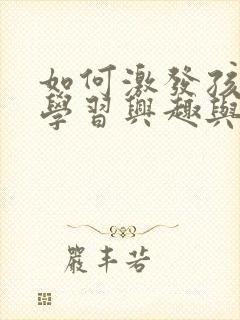 如何激發孩
學習興趣與
嚴丰若